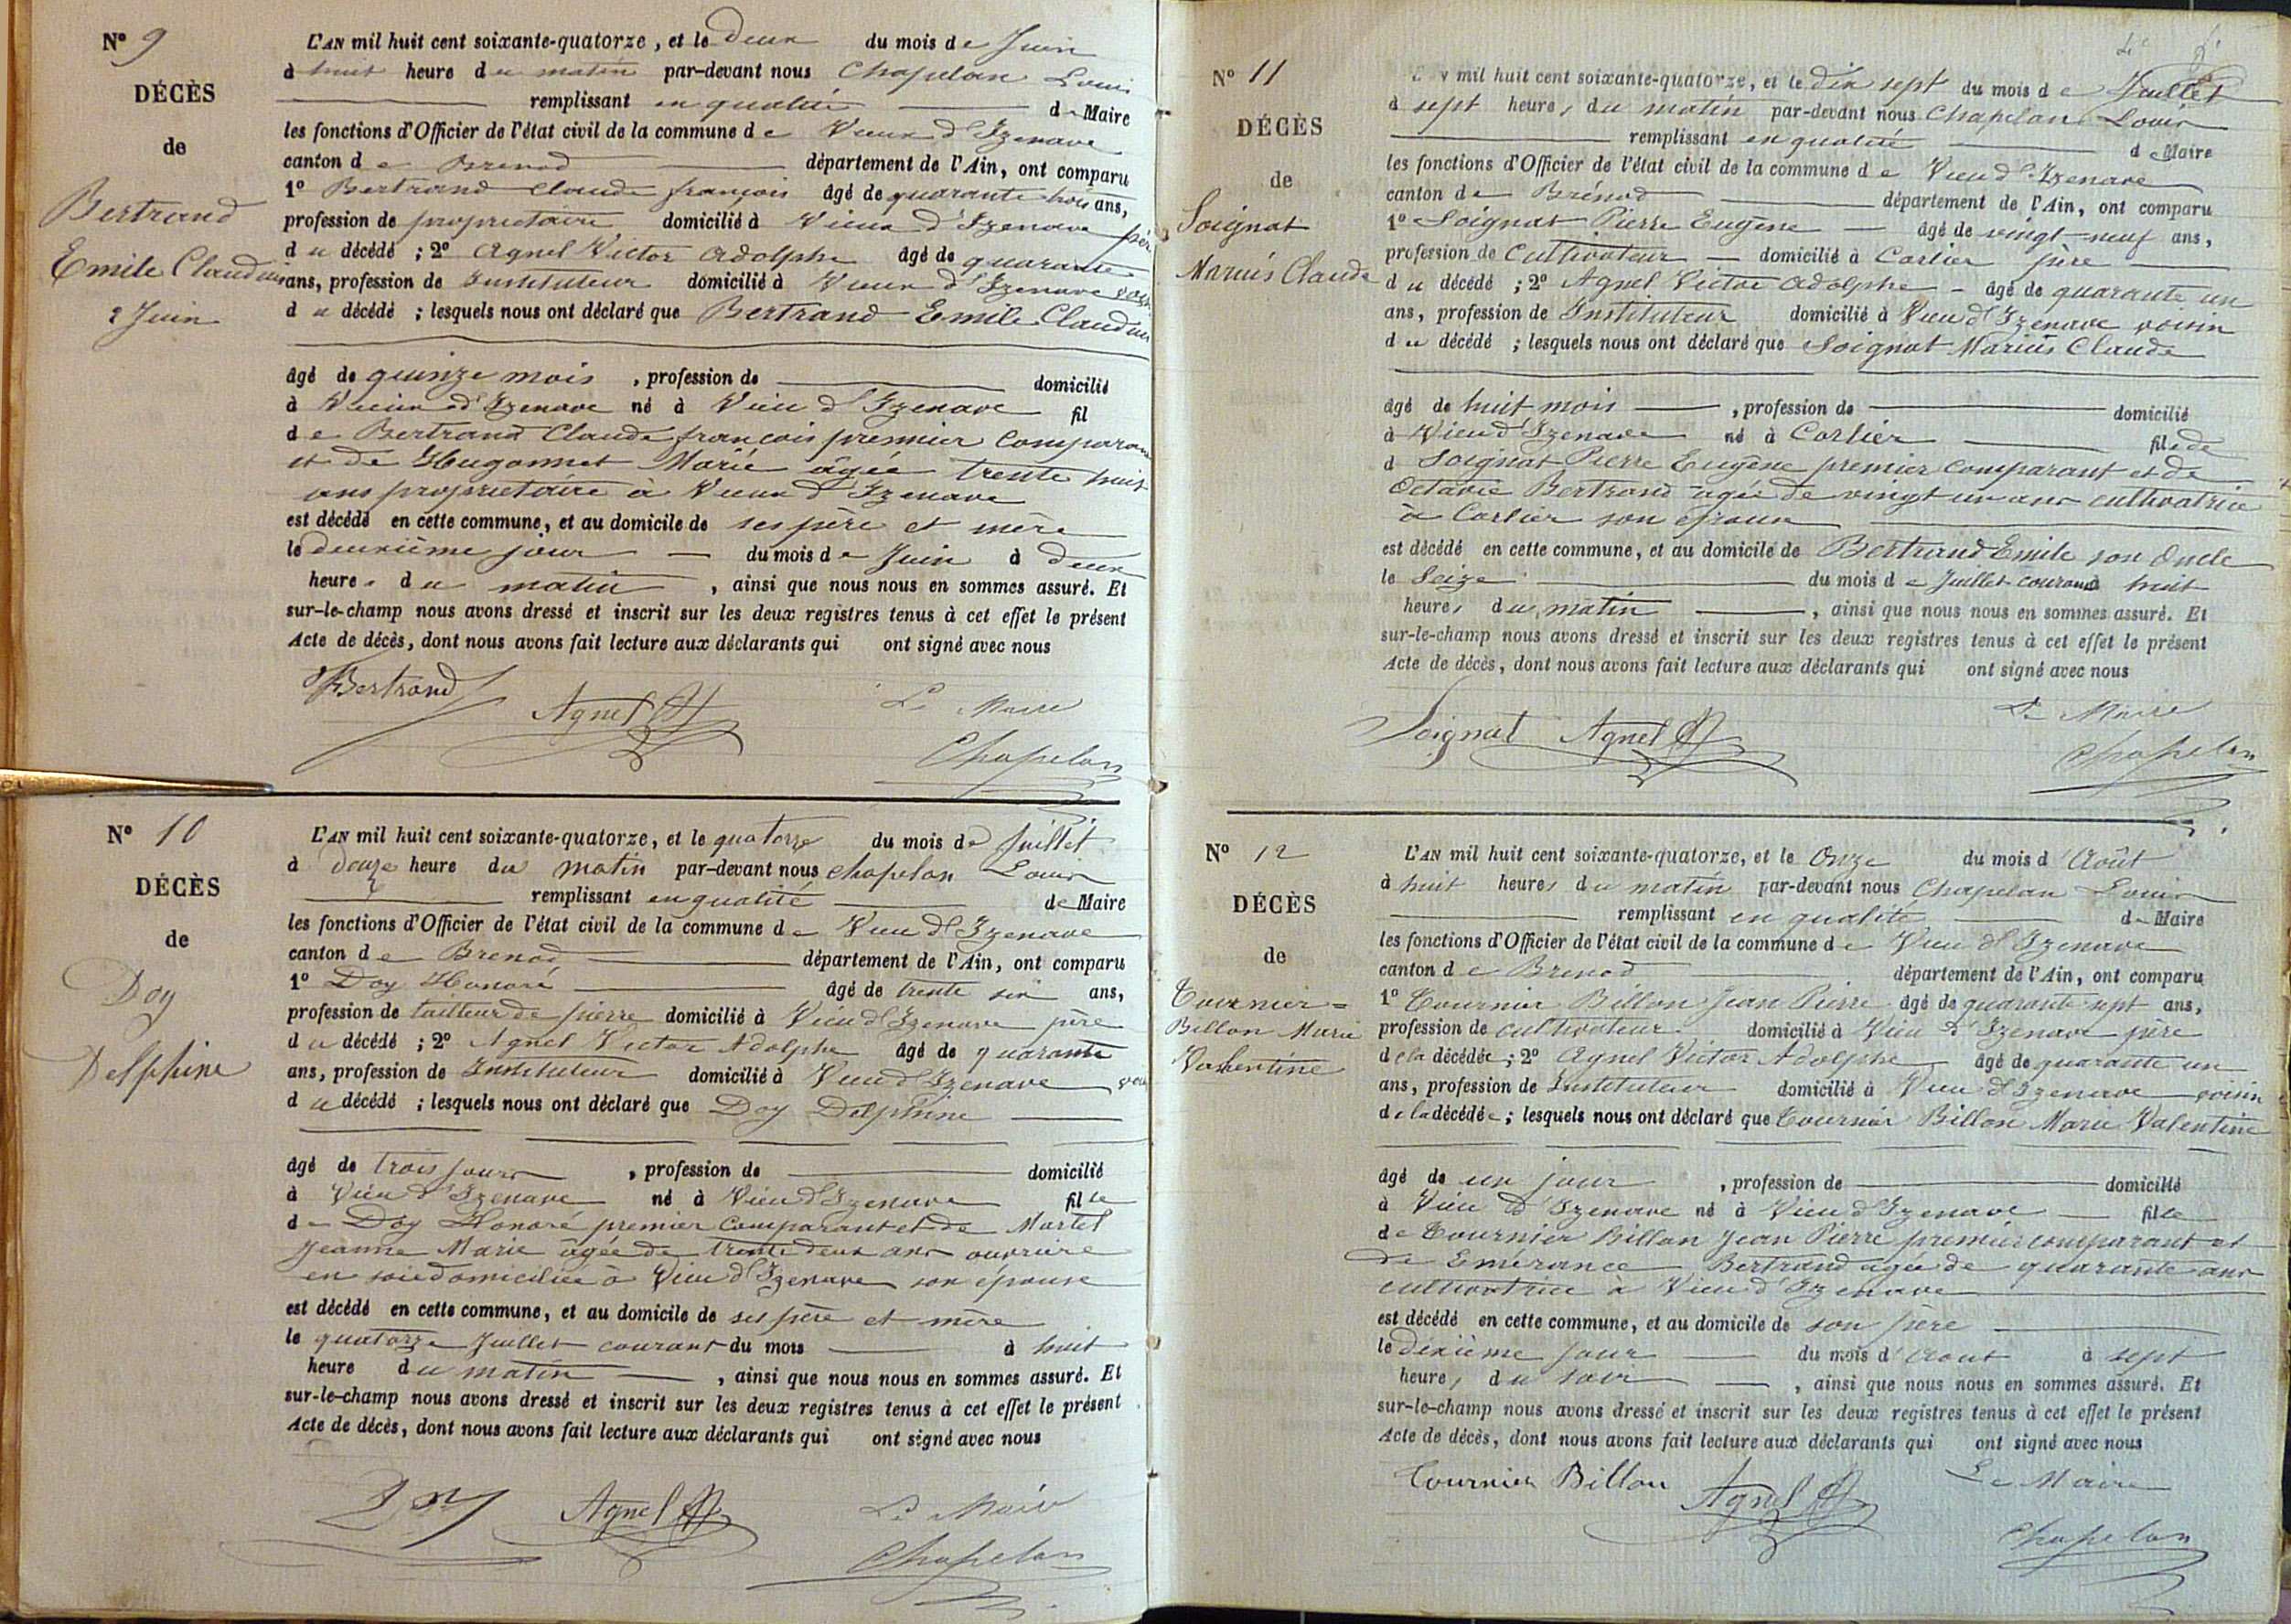 N° 9
DÉCÈS
de
Bertrand
Emile Claudius
2 Juin
L'AN mil huit cent soixante-quatorze, et le deux du mois de Juin
à huit heure du matin par-devant nous Chapelan Louis
remplissant en qualité de Maire
les fonctions d'Officier de l'état civil de la commune de Vieux d'Izenave
canton de Brenod département de l'Ain, ont comparu
1° Bertrand Claude françois âgé de quarante trois ans,
profession de proprietaire domicilié à Vieux d'Izenave père
du décédé ; 2° Agnel Victor Adolphe âgé de quarante
ans, profession de Instituteur domicilié à Vieux d'Izenave
du décédé ; lesquels nous ont déclaré que Bertrand Emile Claudius
âgé de quinze mois, profession de domicilié
à Vieux d'Izenave né à Vieu d'Izenave fil
de Bertrand Claude françois premier comparant
et de Hugonnet Marie âgée trente huit
ans proprietaire à Vieux d'Izenave
est décédé en cette commune, et au domicile de ses père et mère
le deuxième jour du mois de Juin à deux
heure du matin, ainsi que nous nous en sommes assuré. Et
sur-le-champ nous avons dressé et inscrit sur les deux registres tenus à cet effet le présent
Acte de décès, dont nous avons fait lecture aux déclarants qui ont signé avec nous
Bertrand Agnel Le Maire
Chapelan
N° 10
DÉCÈS
de
Doy
Delphine
L'AN mil huit cent soixante-quatorze, et le quatorze du mois de Juillet
à douze heure du matin par-devant nous Chapelan Louis
remplissant en qualité de Maire
les fonctions d'Officier de l'état civil de la commune de Vieu d'Izenave
canton de Brenod département de l'Ain, ont comparu
1° Doy Honoré âgé de trente six ans,
profession de tailleur de pierre domicilié à Vieu d'Izenave père
du décédé ; 2° Agnel Victor Adolphe âgé de quarante
ans, profession de Instituteur domicilié à Vieu d'Izenave
du décédé ; lesquels nous ont déclaré que Doy Delphine
âgé de trois jours, profession de domicilié
à Vieu d'Izenave né à Vieu d'Izenave fille
de Doy Honoré premier comparant et de Martel
Jeanne Marie âgée de trente deux ans ouvrière
en soie domiciliée à Vieu d'Izenave son épouse
est décédé en cette commune, et au domicile de ses père et mère
le quatorze Juillet courant du mois à huit
heure du matin, ainsi que nous nous en sommes assuré. Et
sur-le-champ nous avons dressé et inscrit sur les deux registres tenus à cet effet le présent
Acte de décès, dont nous avons fait lecture aux déclarants qui ont signé avec nous
Doy Agnel Le Maire
Chapelan
N° 11
DÉCÈS
de
Soignat
Mariús Claude
mil huit cent soixante-quatorze, et le dix sept du mois de Juillet
à sept heures du matin par-devant nous Chapelan Louis
remplissant en qualité de Maire
les fonctions d'Officier de l'état civil de la commune de Vieu d'Izenave
canton de Brénod département de l'Ain, ont comparu
1° Soignat Pierre Eugène âgé de vingt-neuf ans,
profession de Cultivateur domicilié à Corlier père
du décédé ; 2° Agnel Victor Adolphe âgé de quarante un
ans, profession de Instituteur domicilié à Vieu d'Izenave voisin
du décédé ; lesquels nous ont déclaré que Soignat Marius Claude
âgé de huit mois, profession de domicilié
à Vieu d'Izenave né à Corlier fils de
d Soignat Pierre Eugène premier comparant et de
Octavie Bertrand âgée de vingt un ans cultivatrice
à Corlier son epoux
est décédé en cette commune, et au domicile de Bertrand Emile son Oncle
le Seize du mois de Juillet courant à huit
heures du matin, ainsi que nous nous en sommes assuré. Et
sur-le-champ nous avons dressé et inscrit sur les deux registres tenus à cet effet le présent
Acte de décès, dont nous avons fait lecture aux déclarants qui ont signé avec nous
Soignat Agnel Le Maire
Chapelan
N° 12
DÉCÈS
de
Tournier=
Billon Marie
Valentine
L'AN mil huit cent soixante-quatorze, et le Onze du mois d'Août
à huit heures du matin par-devant nous Chapelan Louis
remplissant en qualité de Maire
les fonctions d'Officier de l'état civil de la commune de Vieu d'Izenave
canton de Brenod département de l'Ain, ont comparu
1° Tournier Billon Jean Pierre âgé de quarante sept ans,
profession de cultivateur domicilié à Vieu d'Izenave père
de la décédée ; 2° Agnel Victor Adolphe âgé de quarante un
ans, profession de Instituteur domicilié à Vieu d'Izenave voisin
de la décédée ; lesquels nous ont déclaré que Tournier Billon Marie Valentine
âgé de un jour, profession de domicilié
à Vieu d'Izenave né à Vieu d'Izenave fille
de Tournier Billon Jean Pierre premier comparant et
de Emérance Bertrand agée de quarante ans
cultivatrice à Vieu d'Izenave
est décédé en cette commune, et au domicile de son père
le dixième jour du mois d'Aout à sept
heures du soir, ainsi que nous nous en sommes assuré. Et
sur-le-champ nous avons dressé et inscrit sur les deux registres tenus à cet effet le présent
Acte de décès, dont nous avons fait lecture aux déclarants qui ont signé avec nous
Tournier Billon Agnel Le Maire
Chapelan